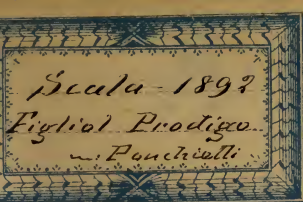 Scala - 1892
Figliol Prodigo
m: Ponchielli